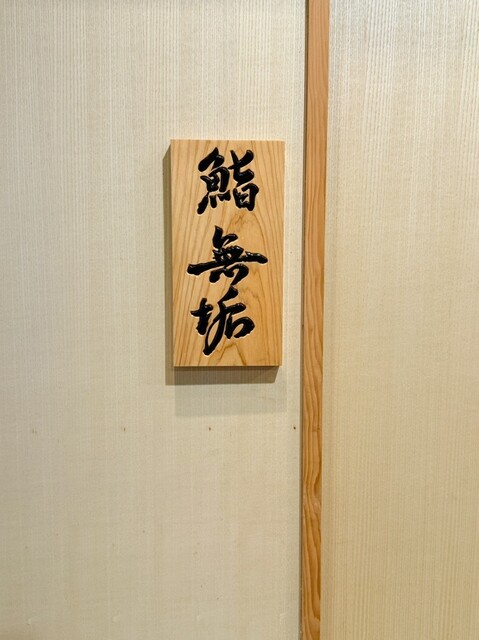 鮨 無垢